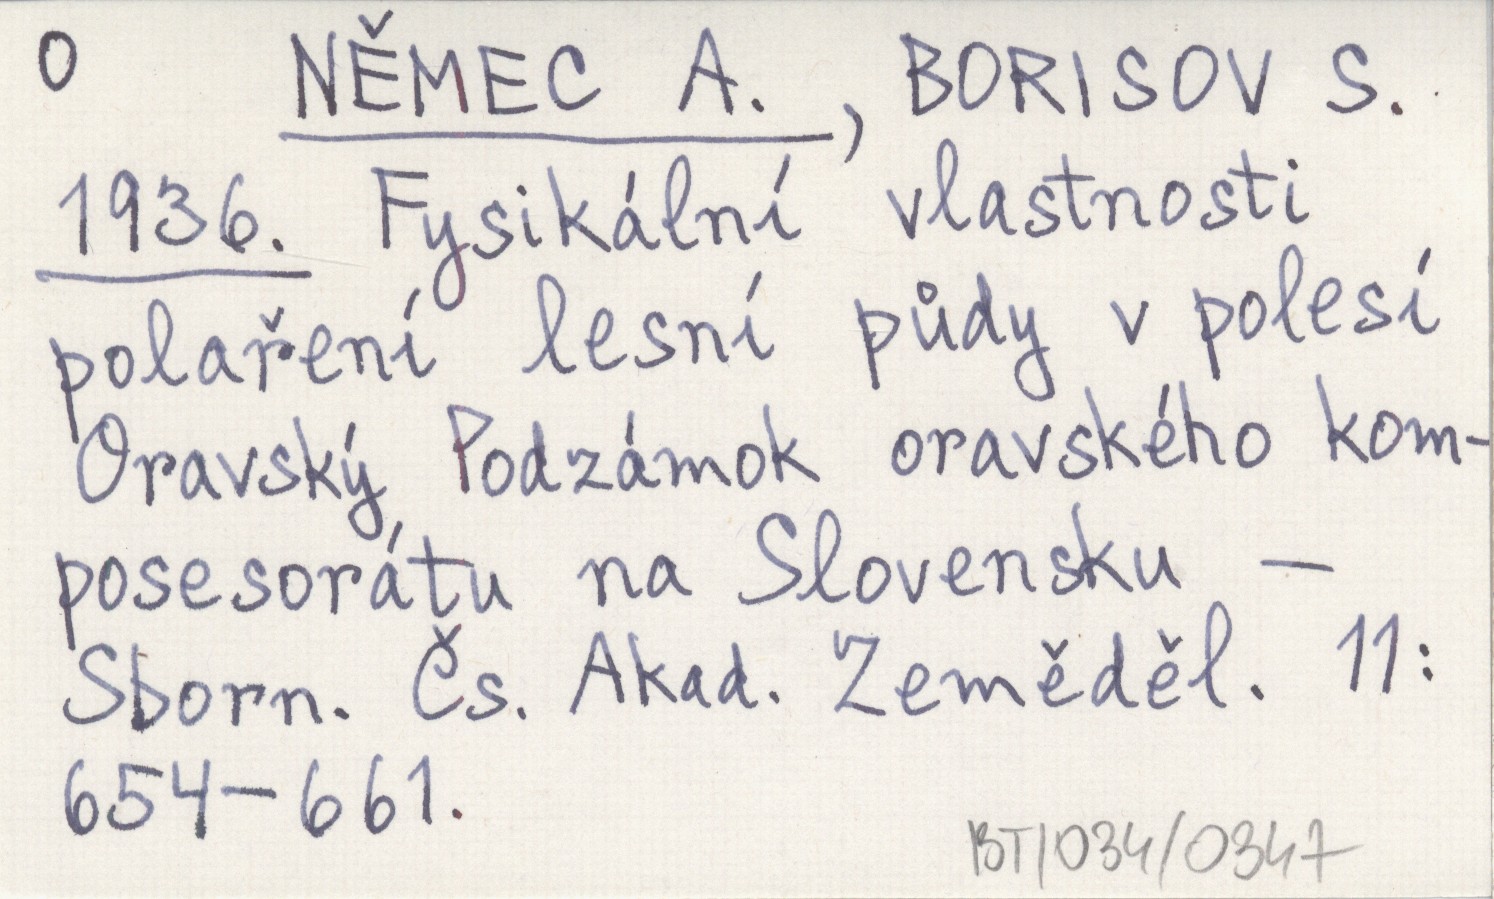 O NĚMEC A., BORISOV S.
1936. Fysikální vlastnosti
polaření lesní půdy v polesí
Oravský Podzámok oravského kom-
posesorátu na Slovensku —
Sborn. Čs. Akad. Zeměděl. 11:
654-661.
BT/034/0347